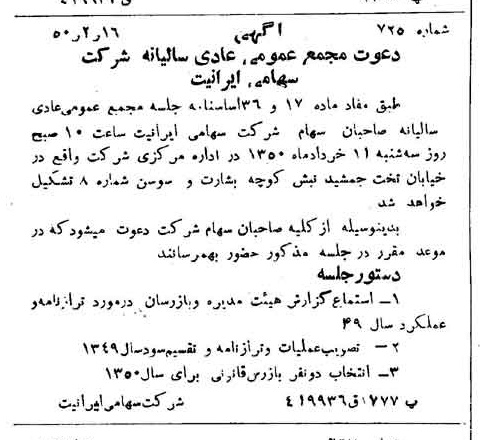 شماره ۷۲۵ آگهی ۱۶ر۲ر۵۰
دعوت مجمع عمومی عادی سالیانه شرکت
سهامی ایرانیت
طبق مفاد ماده ۱۷ و ۳۶اساسنامه جلسه مجمع عمومی‌عادی
سالیانه صاحبان سهام شرکت سهامی ایرانیت ساعت ۱۰ صبح
روز سه‌شنبه ۱۱ خردادماه ۱۳۵۰ در اداره مرکزی شرکت واقع در
خیابان تخت جمشید نبش کوچه بشارت و سوسن شماره ۸ تشکیل
خواهد شد
بدینوسیله از کلیه صاحبان سهام شرکت دعوت میشود که در
موعد مقرر در جلسه مذکور حضور بهمرسانند
دستور جلسه
۱ــ استماع گزارش هیئت مدیره و بازرسان درمورد ترازنامه‌و
عملکرد سال ۴۹
۲ــ تصویب عملیات و ترازنامه و تقسیم سود سال ۱۳۴۹
۳ــ انتخاب دونفر بازرس قانونی برای سال ۱۳۵۰
پ ۱۷۷۷ق ۴۱۹۹۳۶ شرکت سهامی ایرانیت